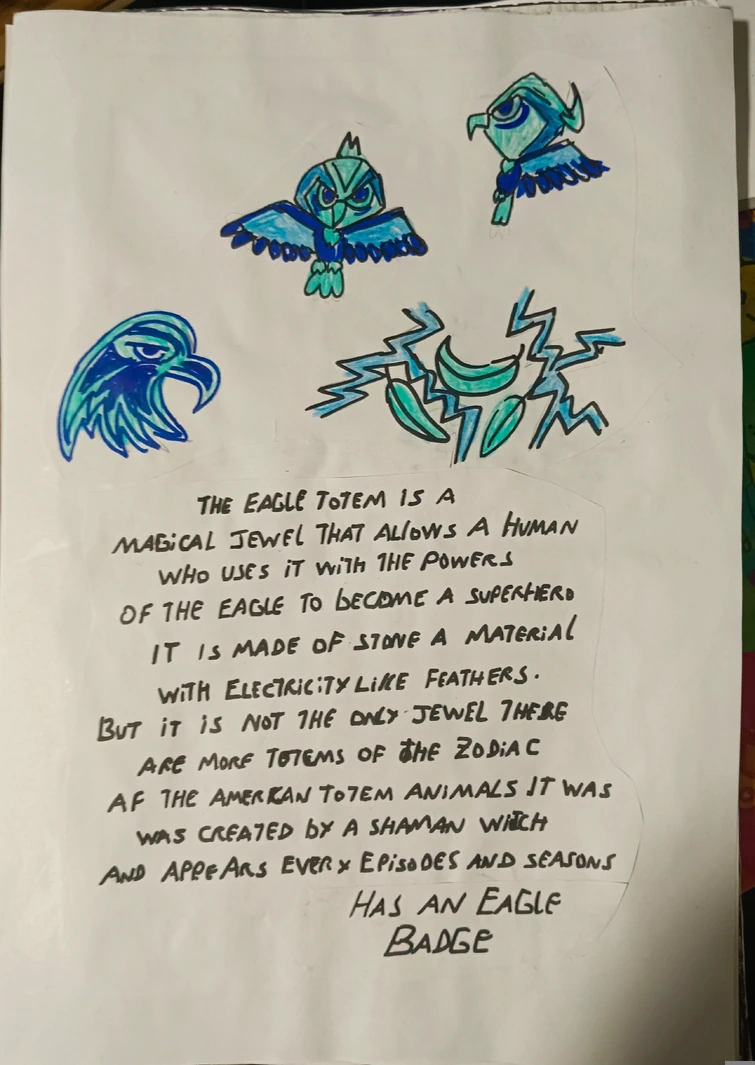 THE EAGLE TOTEM IS A
MAGICAL JEWEL THAT ALLOWS A HUMAN
WHO USES IT WITH THE POWERS
OF THE EAGLE TO BECOME A SUPERHERO
IT IS MADE OF STONE A MATERIAL
WITH ELECTRICITY LIKE FEATHERS.
BUT IT IS NOT THE ONLY JEWEL THERE
ARE MORE TOTEMS OF THE ZODIAC
AF THE AMERICAN TOTEM ANIMALS IT WAS
WAS CREATED BY A SHAMAN WITCH
AND APPEARS EVERY EPISODES AND SEASONS
HAS AN EAGLE
BADGE